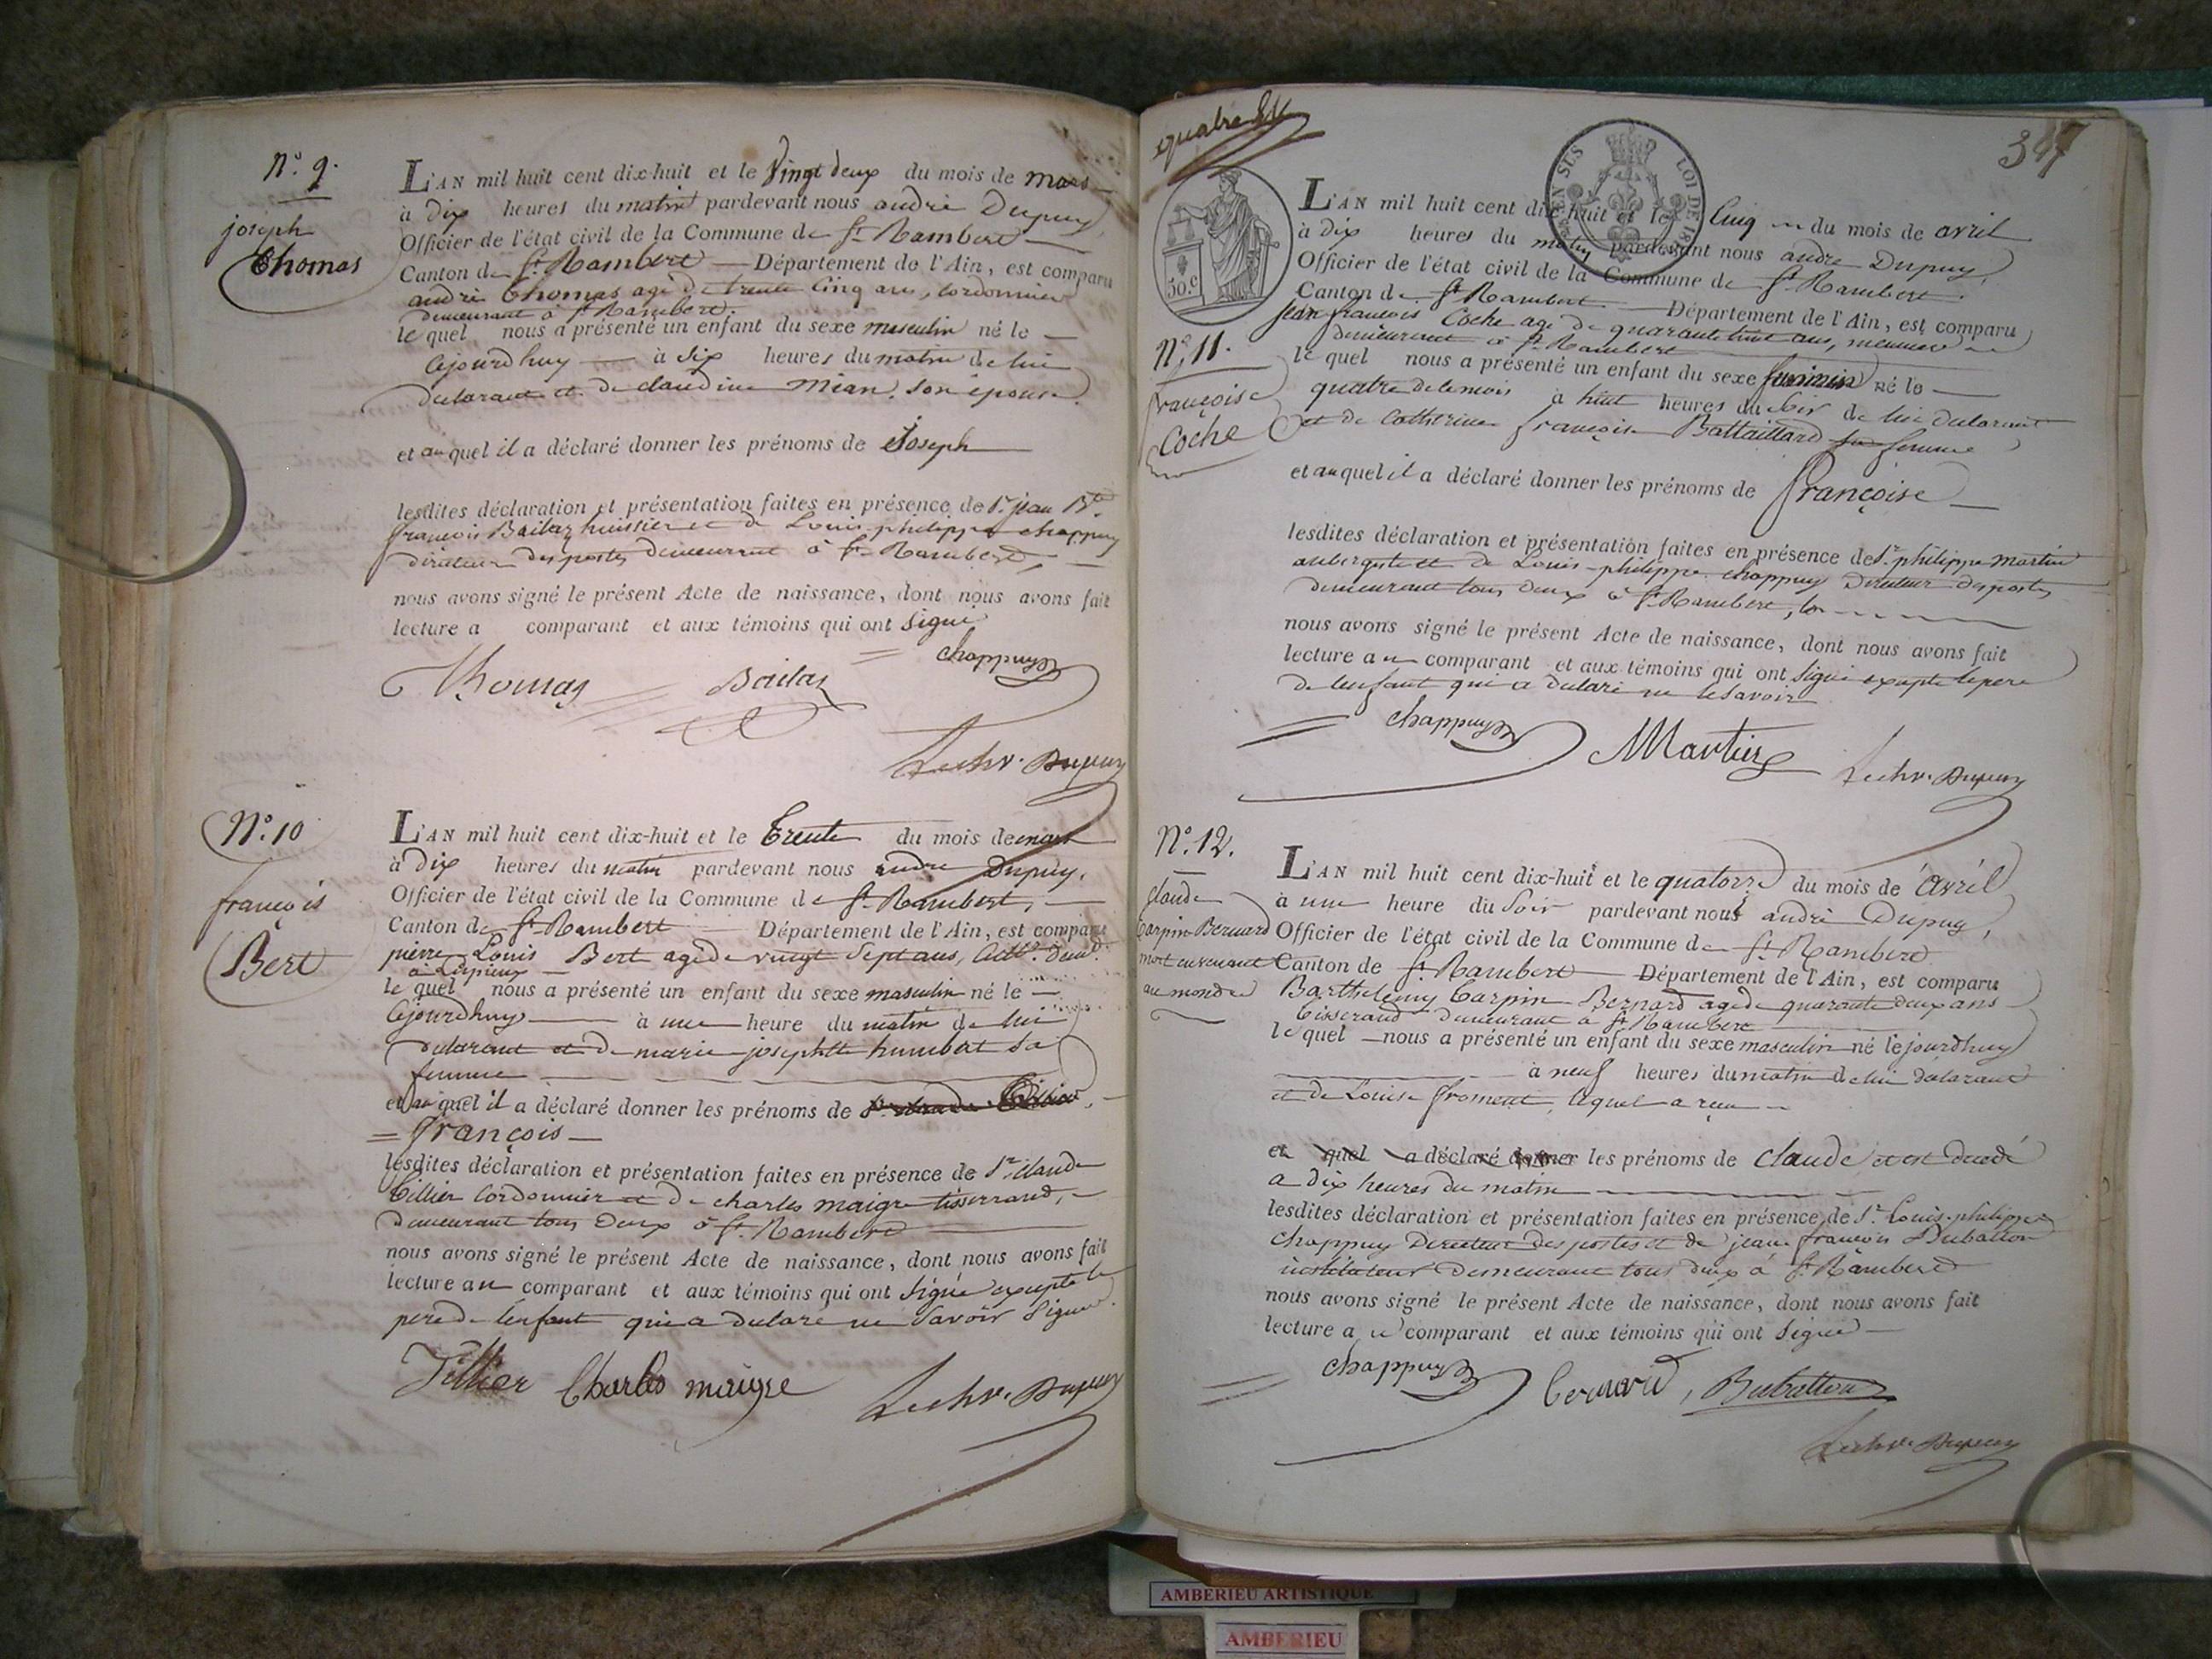 N.º 9.
joseph
Thomas
L'AN mil huit cent dix-huit et le Vingt deux du mois de mars
à dix heures du matin pardevant nous andré Dupuy,
Officier de l'état civil de la Commune de St. Rambert
Canton de St. Rambert Département de l'Ain, est comparu
andré Thomas agé de trente Cinq ans, Cordonnier
demeurant à St. Rambert.
le quel nous a présenté un enfant du sexe masculin né le
Cejourdhuy à Six heures du matin de lui
declarant et de claudine Mian, son épouse.
et au quel il a déclaré donner les prénoms de Joseph
lesdites déclaration et présentation faites en présence de Sr. jean Bte.
françois Bailaz huissier et de Louis philippe chappuy
directeur des postes demeurant à St. Rambert,
nous avons signé le présent Acte de naissance, dont nous avons fait
lecture a comparant et aux témoins qui ont Signé
chappuy
Thomas Bailaz
Dupuy
N.º 10
françois
Bert
L'AN mil huit cent dix-huit et le Trente du mois de mars
à dix heures du matin pardevant nous andré Dupuy,
Officier de l'état civil de la Commune de St. Rambert,
Canton de St. Rambert Département de l'Ain, est comparu
pierre Louis Bert agé de vingt Sept ans,
le quel nous a présenté un enfant du sexe masculin né le
Cejourdhuy à une heure du matin de lui
declarant et de marie josephte humbert Sa
femme
et au quel il a déclaré donner les prénoms de
françois
lesdites déclaration et présentation faites en présence de Sr. claude
Tillier Cordonnier et de charles maigre tisserrand,
demeurant tous Deux à St. Rambert
nous avons signé le présent Acte de naissance, dont nous avons fait
lecture au comparant et aux témoins qui ont Signé excepté le
pere de l'enfant qui a declaré ne Savoir Signer
Tillier Charles maigre Dupuy
quatre
347
TIMBRE
LOI DE 18
50.c
L'AN mil huit cent dix-huit et le Cinq du mois de avril
à dix heures du matin pardevant nous andré Dupuy,
Officier de l'état civil de la Commune de St. Rambert.
Canton de St. Rambert Département de l'Ain, est comparu
Jean françois Coche agé de quarante huit ans, meunier
demeurant à St. Rambert
N.º 11.
françoise
Coche
le quel nous a présenté un enfant du sexe feminin né le
quatre de ce mois à huit heures du Soir de lui declarant
et de Catherine françoise Battaillard sa femme
et au quel il a déclaré donner les prénoms de françoise
lesdites déclaration et présentation faites en présence de Sr. philippe martin
aubergiste et de Louis-philippe chappuy Directeur des postes
demeurant tous deux à St. Rambert,
nous avons signé le présent Acte de naissance, dont nous avons fait
lecture au comparant et aux témoins qui ont Signé excepté le pere
de lenfant qui a declaré ne le Savoir
chappuy Martin Dupuy
N.º 12.
claude
Carpin Bernard
mort en venant
au monde
L'AN mil huit cent dix-huit et le quatorze du mois de avril
à une heure du Soir pardevant nous andré Dupuy,
Officier de l'état civil de la Commune de St. Rambert
Canton de St. Rambert Département de l'Ain, est comparu
Barthelemy Carpin Bernard agé de quarante deux ans
tisserand demeurant à St. Rambert
le quel nous a présenté un enfant du sexe masculin né cejourdhuy
à neuf heures du matin de lui declarant
et de Louise froment, lequel a reçu
et quel a déclaré donner les prénoms de claude et est decedé
a dix heures du matin
lesdites déclaration et présentation faites en présence de Sr. Louis-philippe
Chappuy Directeur des postes et de jean françois Dubatton
instituteur demeurant tous deux à St. Rambert
nous avons signé le présent Acte de naissance, dont nous avons fait
lecture au comparant et aux témoins qui ont Signé
chappuy Bernard, Dubatton
Dupuy
AMBERIEU ARTISTIQUE
AMBERIEU